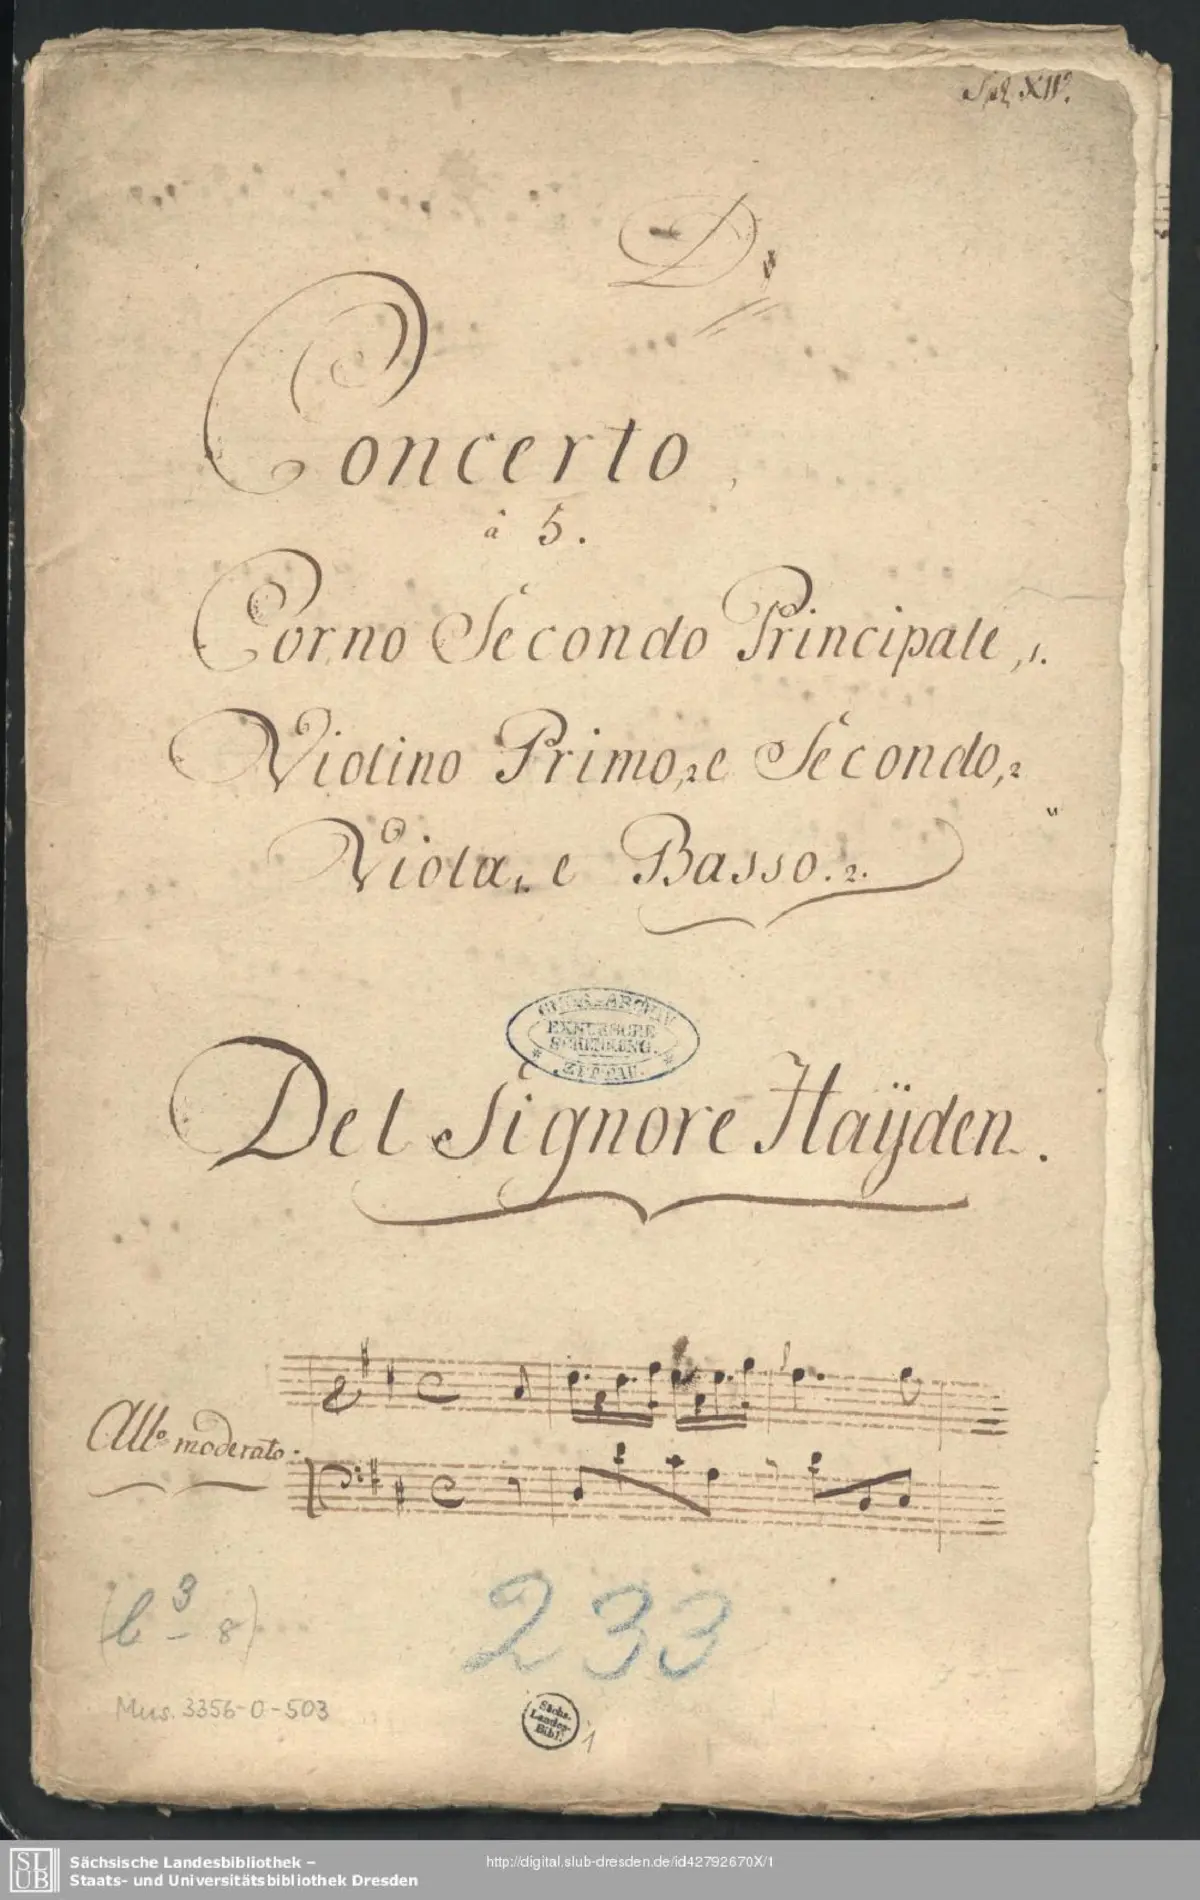 D
Concerto
â 5.
Corno Secondo Principale, 1.
Violino Primo, 2 e Secondo, 2
Viola, 1. e Basso. 2.
EXNERSCHE
SCHENKUNG.
ZITTAU.
Del Signore Haÿden.
All.o moderato.
(b 3 - 8)
233
Mus. 3356-O-503
Sächs.
Landes-
Bibl.
1
SLUB
Sächsische Landesbibliothek –
Staats- und Universitätsbibliothek Dresden
http://digital.slub-dresden.de/id42792670X/1